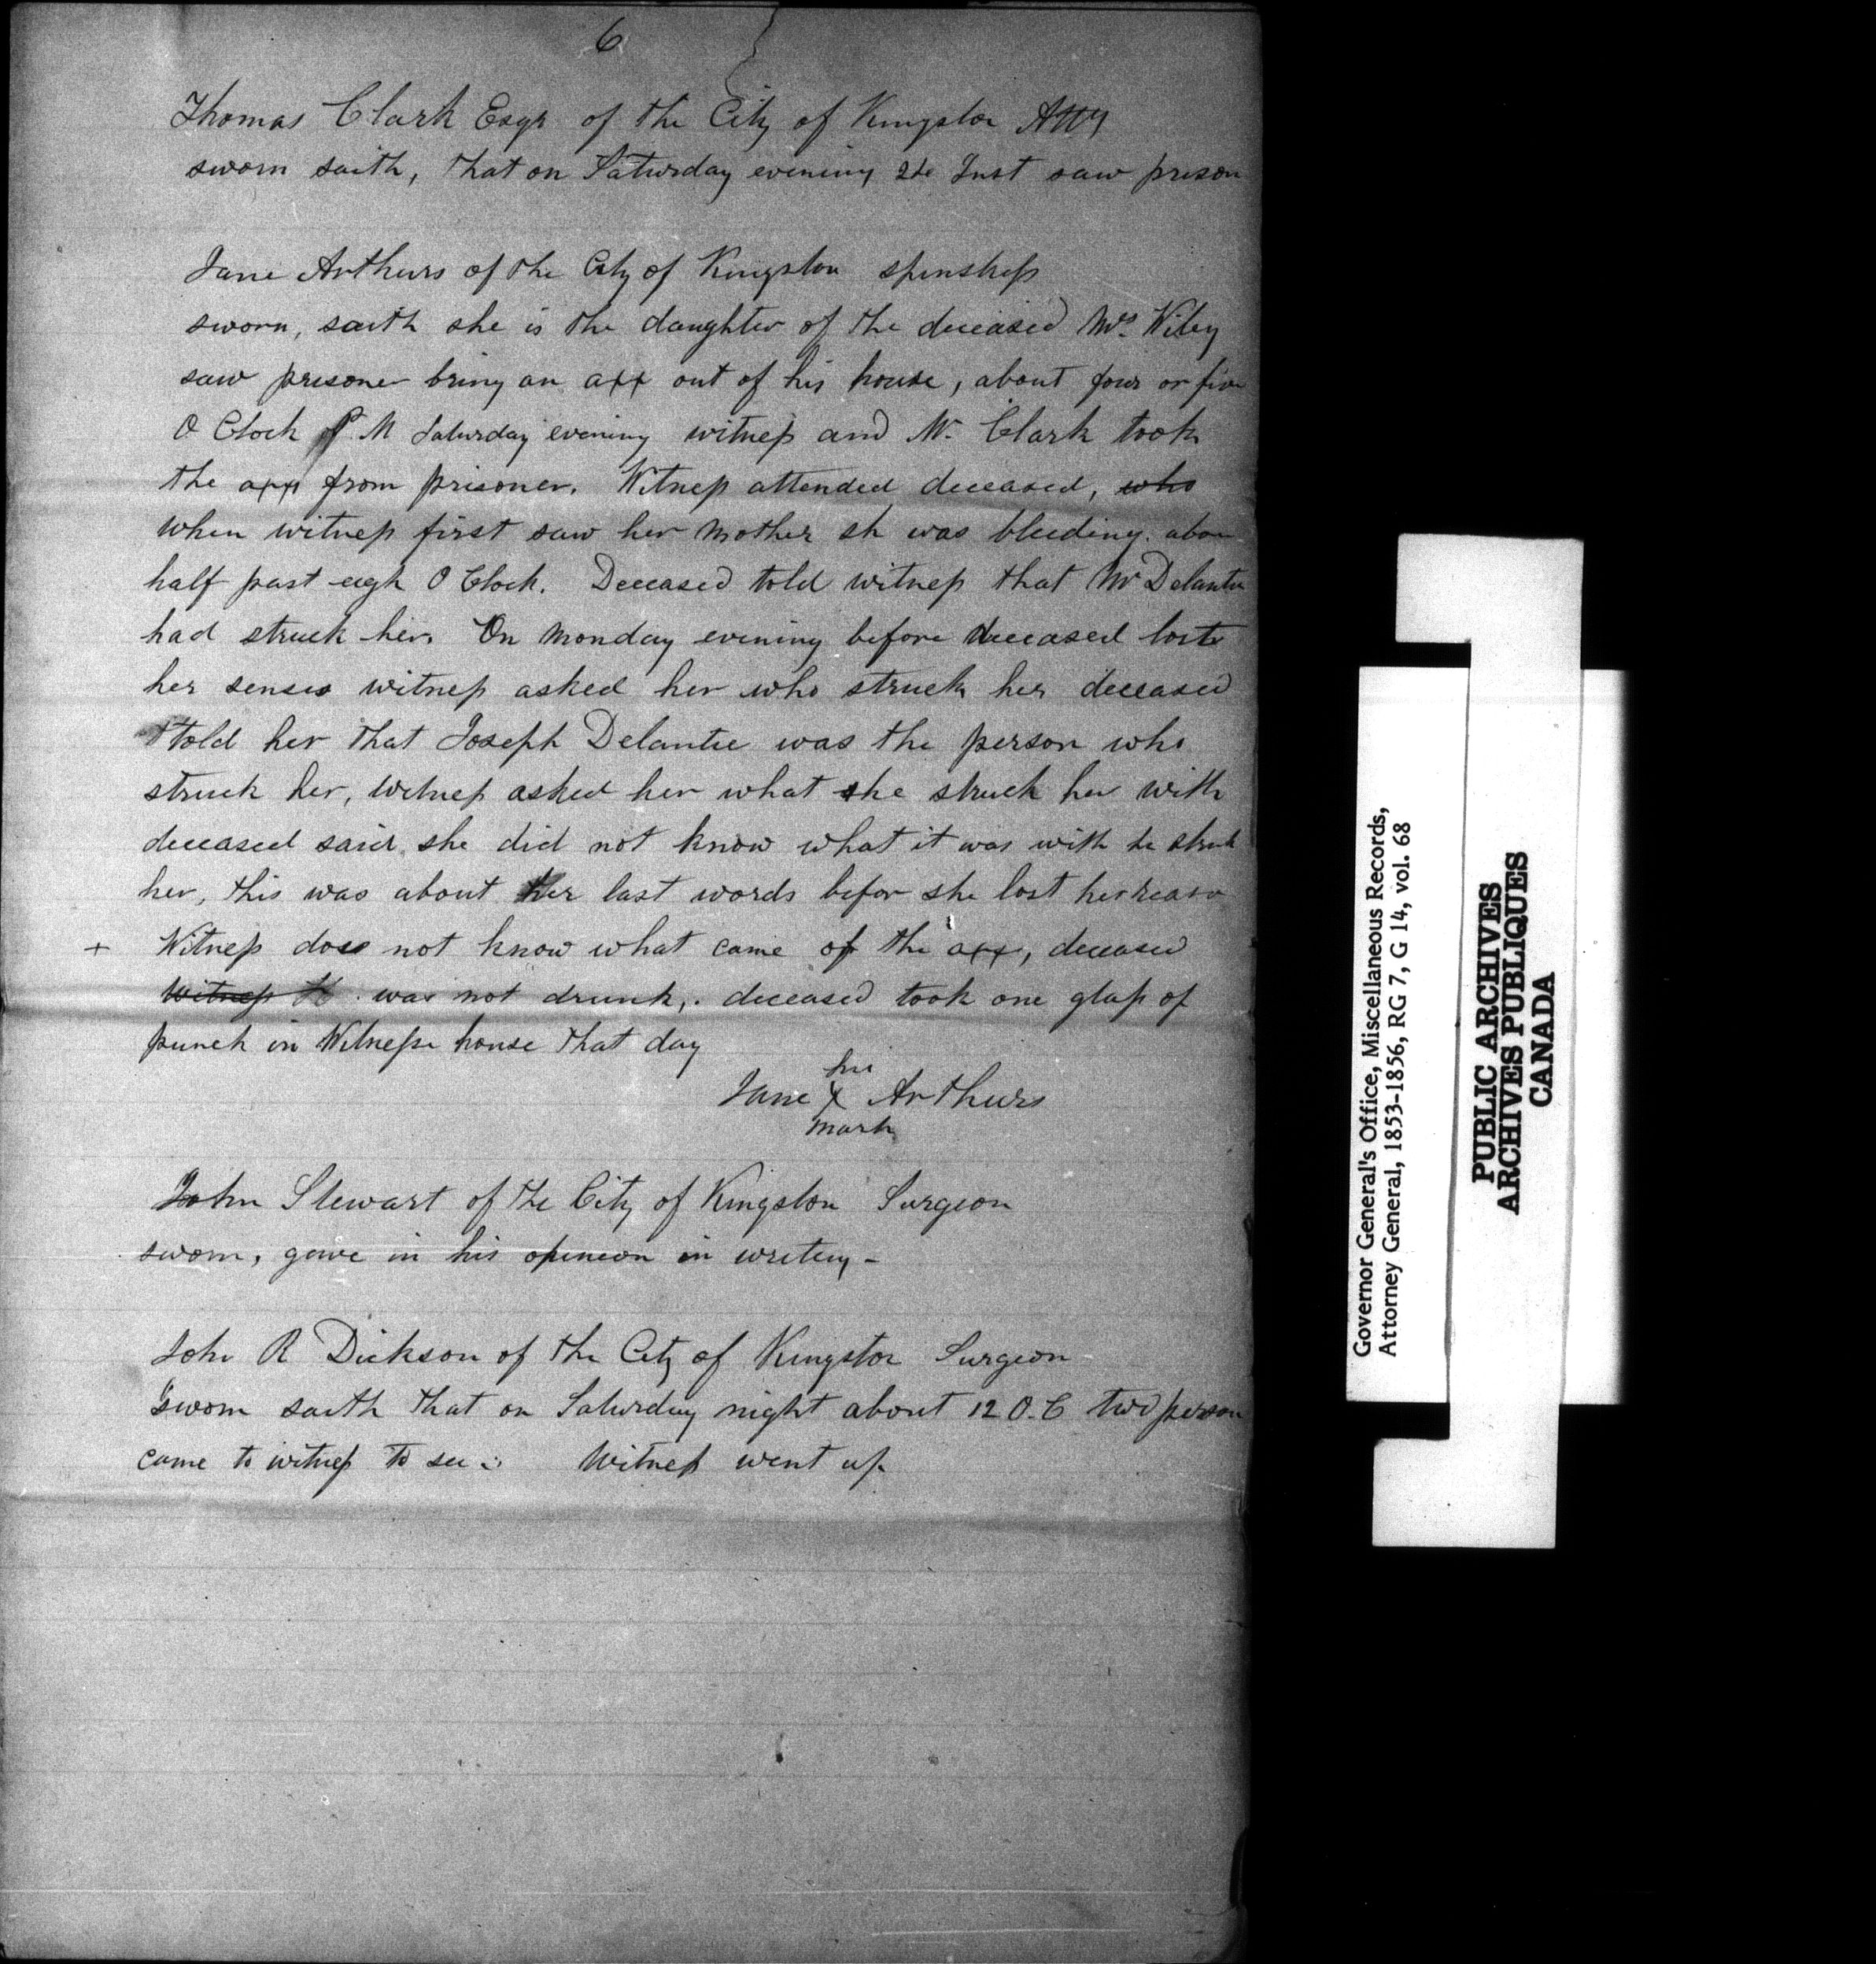 6
Thomas Clark Esqr of the City of Kingston Atty
sworn saith, that on Saturday evening Inst saw prison
Jane Arthurs of the City of Kingston
sworn, saith she is the daughter of the deceased Mrs. Wiley
saw prisoner bring an axx out of his house, about four or five
O Clock P. M Saturday evening witness and Mr. Clark took
the axx from prisoner. Witness attended deceased, who
when witness first saw her mother sh was bleeding. abou
half past eigh O Clock. Deceased told witness that Mr Delantie
had struck her. On Monday evening before deceased lost
her senses witness asked her who struck her deceased
told her that Joseph Delantie was the person who
struck her, witness asked her what she struck her with
deceased said she did not know what it was with he struk
her, this was about her last words befor she lost her reason
+ Witness does not know what came of the axx, deceased
Witness was not drunk, deceased took one glass of
punch in Witness house that day
his
Jane X Arthurs
mark
John Stewart of the City of Kingston Surgeon
sworn, gave in his opineon in writeng -
John R Dickson of the City of Kingston Surgeon
sworn saith that on Saturday night about 12 O.C two person
came to witness to see Witness went up
Governor General's Office, Miscellaneous Records,
Attorney General, 1853-1856, RG 7, G 14, vol. 68
PUBLIC ARCHIVES
ARCHIVES PUBLIQUES
CANADA